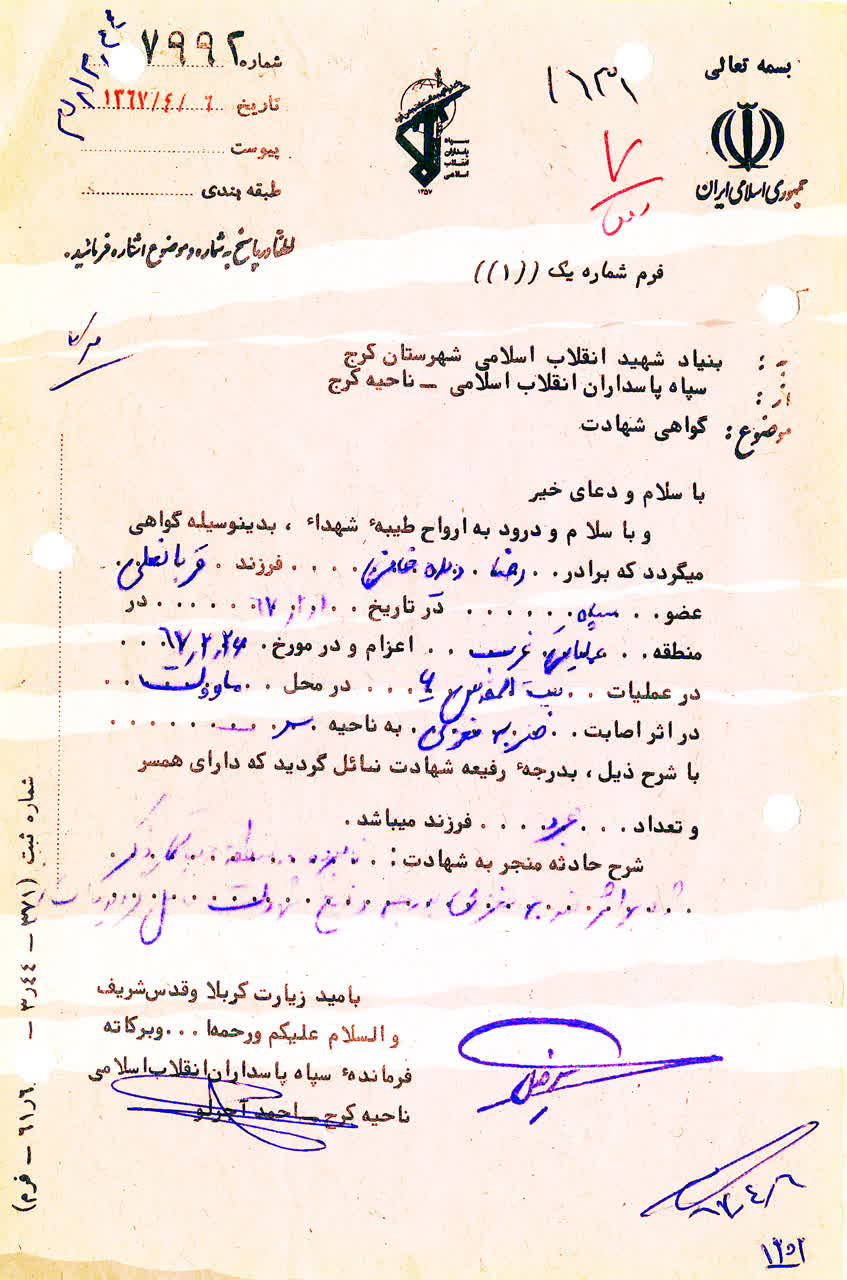 بسمه تعالی
جمهوری اسلامی ایران
۱۶۳۱
۷
سپاه پاسداران انقلاب اسلامی
۱۳۵۷
شماره ۷۹۹۲
تاریخ ۱۳۶۷/۴/۶
پیوست
طبقه بندی
لطفا در پاسخ به شماره و موضوع اشاره فرمائید.
فرم شماره یک ((۱))
به : بنیاد شهید انقلاب اسلامی شهرستان کرج
از : سپاه پاسداران انقلاب اسلامی ــ ناحیه کرج
موضوع : گواهی شهادت
با سلام و دعای خیر
و با سلام و درود به ارواح طیبهٔ شهداء ، بدینوسیله گواهی
میگردد که برادر . . رضا . . . . . . فرزند . قربانعلی
عضو . . سپاه . . . . . . در تاریخ . . . ۶۷ . . . . . . در
منطقه . . عملیاتی غرب . . اعزام و در مورخ . ۶۷٫۳٫۲۴ . . .
در عملیات . . بیت المقدس ۶ . . . در محل . . ماووت . . .
در اثر اصابت . . ضربه مغزی . به ناحیه . سر . . . . . . . .
با شرح ذیل ، بدرجهٔ رفیعه شهادت نائل گردید که دارای همسر
و تعداد . . . . . . . فرزند میباشد .
شرح حادثه منجر به شهادت : . . نامبرده در منطقه
بر اثر ضربه مغزی به درجه رفیع شهادت نائل
بامید زیارت کربلا و قدس شریف
و السلام علیکم ورحمها . . . وبرکاته
فرماندهٔ سپاه پاسداران انقلاب اسلامی
ناحیه کرج ــ احمد آجرلو
۶۷/۴/۶
۱۳۵۲
شماره ثبت (۳۷۱ ــ ۳٫۴۴ ــ ۶۱٫۶ ــ فرم)